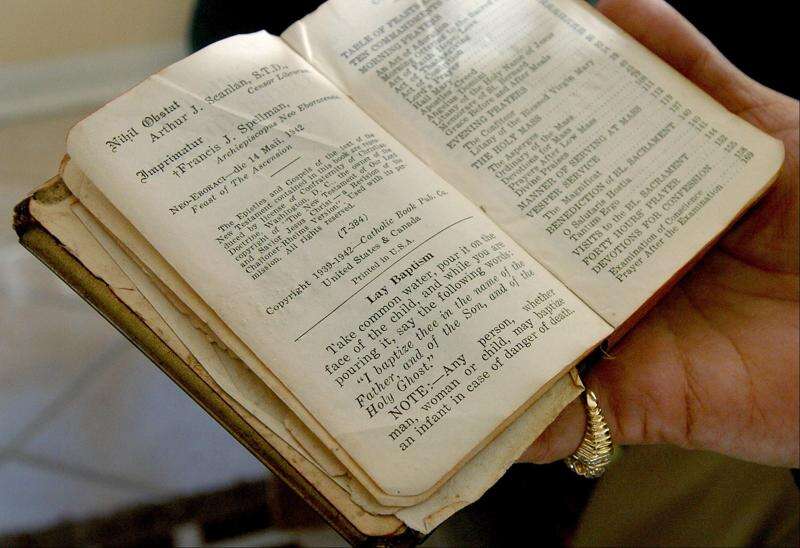 Nihil Obstat
Arthur J. Scanlan, S.T.D.,
Censor Librorum
Imprimatur
†Francis J. Spellman,
Archiepiscopus Neo Eboracensis
NEO-EBORACI—die 14 Maii, 1942
Feast of The Ascension
The Epistles and Gospels of the text of the
New Testament contained in this book are
license of Confraternity of Christian
Doctrine, Washington, D. C., the owner of the
copyright of "The New Testament of Our Lord
and Savior Jesus Christ—A Revision of the
Challoner-Rheims Version." Used with its per-
mission. All rights reserved.
(T-384)
Copyright 1939-1942—Catholic Book Pub. Co.
United States & Canada
Printed in U.S.A.
Lay Baptism
Take common water, pour it on the
face of the child, and while you are
pouring it, say the following words:
"I baptize thee in the name of the
Father, and of the Son, and of the
Holy Ghost."
NOTE:—Any person, whether
man, woman or child, may baptize
an infant in case of danger of death.
TABLE OF FEASTS
TEN COMMANDMENTS
MORNING PRAYERS
Grace Before and After Meals
EVENING PRAYERS
The Confiteor
Litany of the Blessed Virgin Mary
THE HOLY MASS
The Answers of the Mass
Ordinary of the Mass
Prayers After Low Mass
Divine Praises
MANNER OF SERVING AT MASS
VESPER SERVICE
The Magnificat
BENEDICTION OF BL. SACRAMENT
O Salutaris Hostia
Tantum Ergo
VISITS to the BL. SACRAMENT
FORTY HOURS' PRAYER
DEVOTIONS FOR CONFESSION
Examination of Conscience
Prayer After the Examination